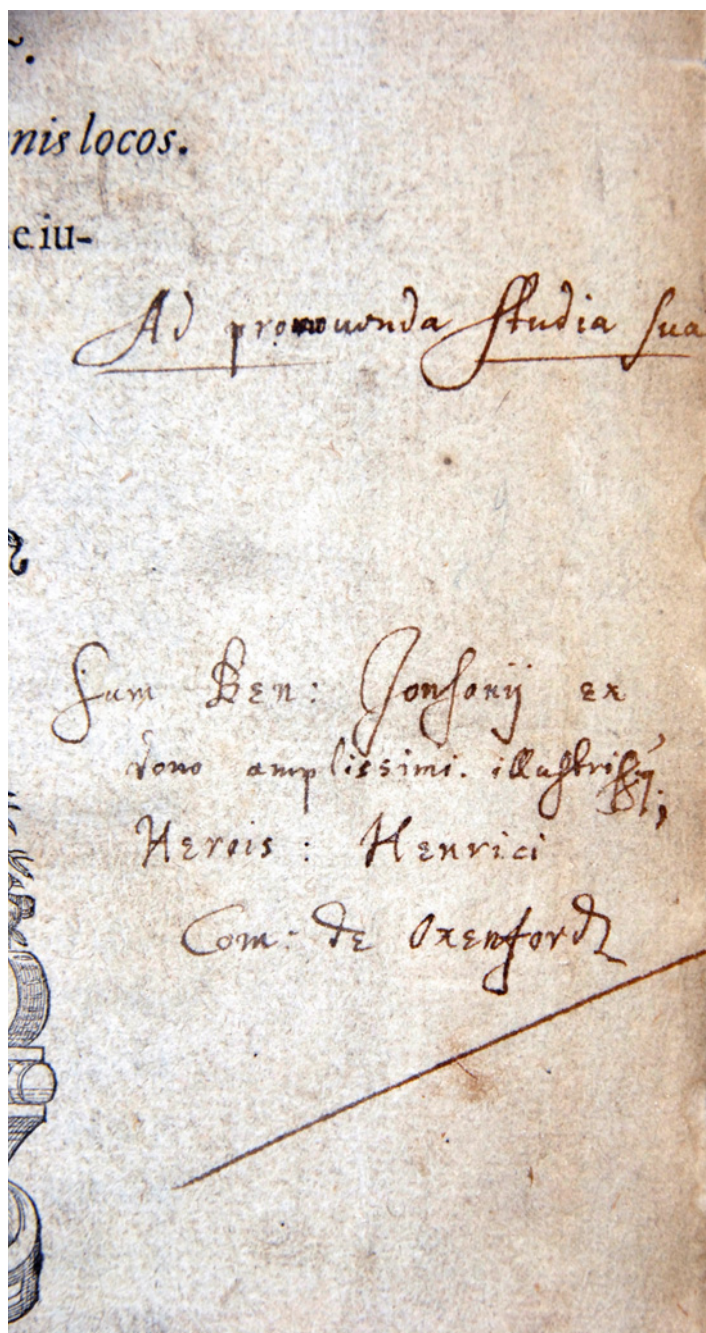 nis locos.
e iu-
Ad promouenda studia sua
Sum Ben: Jonsonij ex
dono amplissimi. illustrissimiq;
Herois: Henrici
Com: de Oxenford